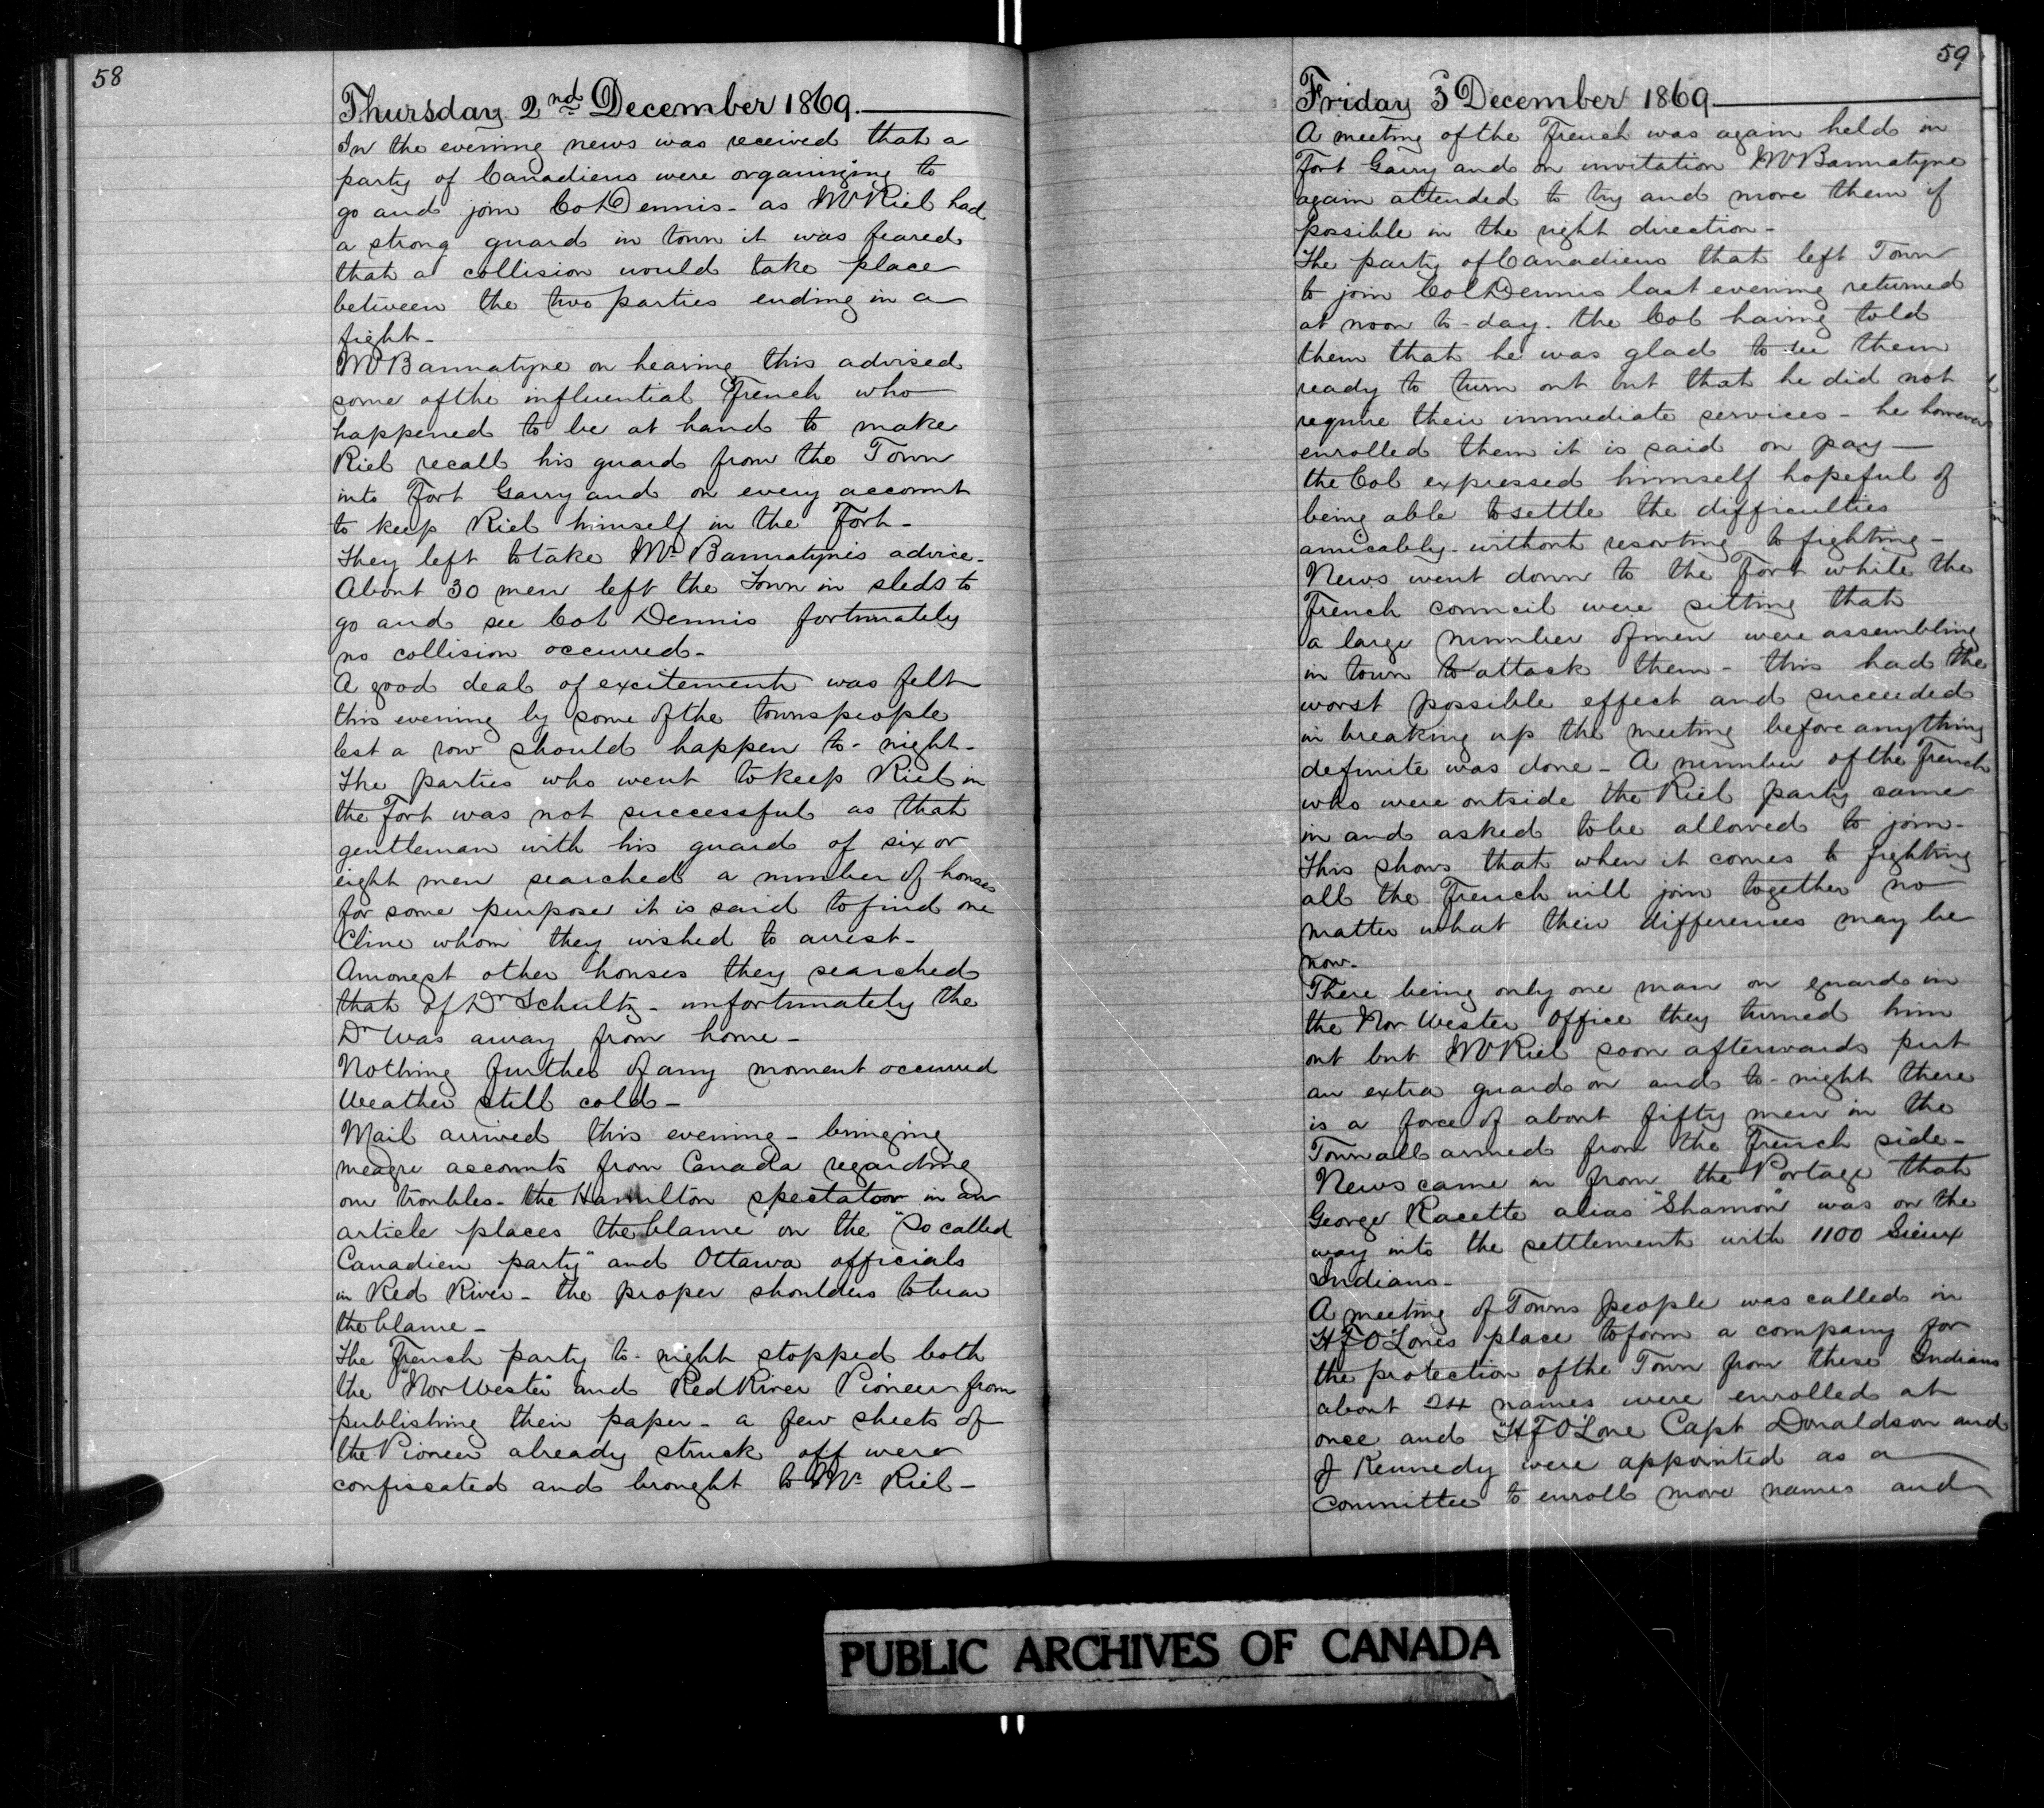 58
Thursday 2nd December 1869.
In the evening news was received that a
party of Canadiens were organizing to
go and join Col Dennis - as Mr Riel had
a strong guard in town it was feared
that a collision would take place
between the two parties ending in a
fight -
Mr Bannatyne on hearing this advised
some of the influential French who
happened to be at hand to make
Riel recall his guard from the Town
into Fort Garry and on every account
to keep Riel himself in the Fort -
They left to take Mr Bannatynes advice -
About 30 men left the Town in sleds to
go and see Col Dennis fortunately
no collision occurred -
A good deal of excitement was felt
this evening by some of the townspeople
lest a row should happen to-night -
The parties who went to keep Riel in
the Fort was not successful as that
gentleman with his guard of six or
eight men searched a number of houses
for some purpose it is said to find one
Cline whom they wished to arrest -
Amongst other houses they searched
that of Dr Schultz - unfortunately the
Dr was away from home -
Nothing further of any moment occurred
Weather still cold -
Mail arrived this evening - bringing
meagre accounts from Canada regarding
our troubles - the Hamilton spectator in an
article places the blame on the "So called
Canadien party" and Ottawa officials
in Red River - the proper shoulders to bear
the blame -
The French party to-night stopped both
the "Nor Wester" and Red River Pioneer from
publishing their paper - a few sheets of
the Pioneer already struck off were
confiscated and brought to Mr Riel -
59
Friday 3d December 1869
A meeting of the French was again held in
Fort Garry and on invitation Mr Bannatyne
again attended to try and move them if
possible in the right direction -
The party of Canadiens that left Town
to join Col Dennis last evening returned
at noon to-day. the Col having told
them that he was glad to see them
ready to turn out but that he did not
require their immediate services - he however
enrolled them it is said on pay -
the Col expressed himself hopeful of
being able to settle the difficulties
amicably - without resorting to fighting -
News went down to the Fort while the
French council were sitting that
a large number of men were assembling
in town to attack them - this had the
worst possible effect and succeeded
in breaking up the meeting before anything
definite was done - A number of the French
who were outside the Riel party came
in and asked to be allowed to join -
This shows that when it comes to fighting
all the French will join together no
matter what their differences may be
now -
There being only one man on guard in
the Nor Wester Office they turned him
out but Mr Riel soon afterwards put
an extra guard on and to-night there
is a force of about fifty men in the
Town all armed from the French side -
News came in from the Portage that
George Racette alias "Shamon" was on the
way into the settlement with 1100 Sieux
Indians -
A meeting of Towns people was called in
H F O'Lones place to form a company for
the protection of the Town from these Indians
about 24 names were enrolled at
once and H F O'Lone Capt Donaldson and
J Kennedy were appointed as a
Committee to enroll more names and
PUBLIC ARCHIVES OF CANADA